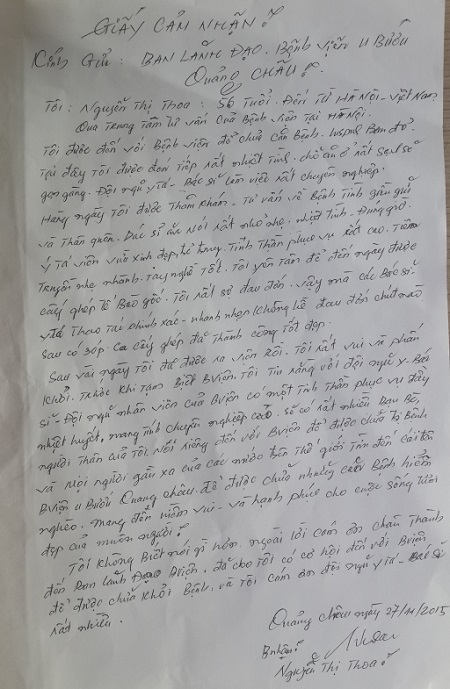 GIẤY CẢM NHẬN!
Kính Gửi: BAN LÃNH ĐẠO. Bệnh viện U Bướu
Quảng CHÂU!
Tôi: Nguyễn Thị Thoa: 56 Tuổi. ĐẾN Từ HÀ NỘI - Việt Nam
Qua Trung Tâm tư vấn Của Bệnh viện Tại HÀ NỘI.
Tôi được đến với Bệnh viện để chữa căn Bệnh. luspus Ban đỏ.
Tại đây Tôi được đón Tiếp rất nhiệt Tình. chỗ ăn ở rất sạch sẽ
gọn gàng. Đội ngũ y Tá - Bác sĩ làm việc rất chuyên nghiệp.
Hàng ngày Tôi được Thăm khám. Tư vấn về Bệnh Tình gần gũi
và Thân quen. Bác sĩ ăn Nói rất nhỏ nhẹ, nhiệt tình. Đúng giờ.
Y Tá viên vừa xinh đẹp, Tinh Thần phục vụ rất cao. Tiêm
Truyền nhẹ nhành. Tay nghề Tốt. Tôi yên tâm để đến ngày được
cấy ghép Tế Bào gốc. Tôi rất sợ đau đớn. vậy mà các Bác sĩ.
Thao Tác chính xác - nhanh nhẹn không hề đau đớn chút nào
Ca cấy ghép đã Thành công Tốt đẹp.
Sau vài ngày Tôi đã được ra viện rồi. Tôi rất vui và phấn
khởi. Trước khi tạm Biệt Bviện, Tôi Tin rằng với đội ngũ y - Bác
sĩ - Đội ngũ nhân viên của Bviện có một Tinh Thần phục vụ đầy
nhiệt huyết, mang Tính chuyên nghiệp cao. Sẽ có rất nhiều Bạn Bè,
người Thân của Tôi. Nói riêng đến với Bviện để được chữa trị Bệnh
và mọi người gần xa của các nước trên Thế giới Tìm đến
Bviện U Bướu Quảng châu. để được chữa những căn Bệnh hiểm
nghèo. Mang đến niềm vui - và hạnh phúc cho cuộc sống Tươi
đẹp của muôn người!
Tôi không Biết nói gì hơn. ngoài lời cảm ơn chân Thành
đến Ban lãnh ĐẠO Bviện. đã cho Tôi có cơ hội đến với Bviện
để được chữa khỏi Bệnh, và Tôi cảm ơn đội ngũ y Tá - Bác sĩ
rất nhiều.
Quảng châu ngày 27/11/2015
Bnhân!
Nguyễn Thị Thoa!